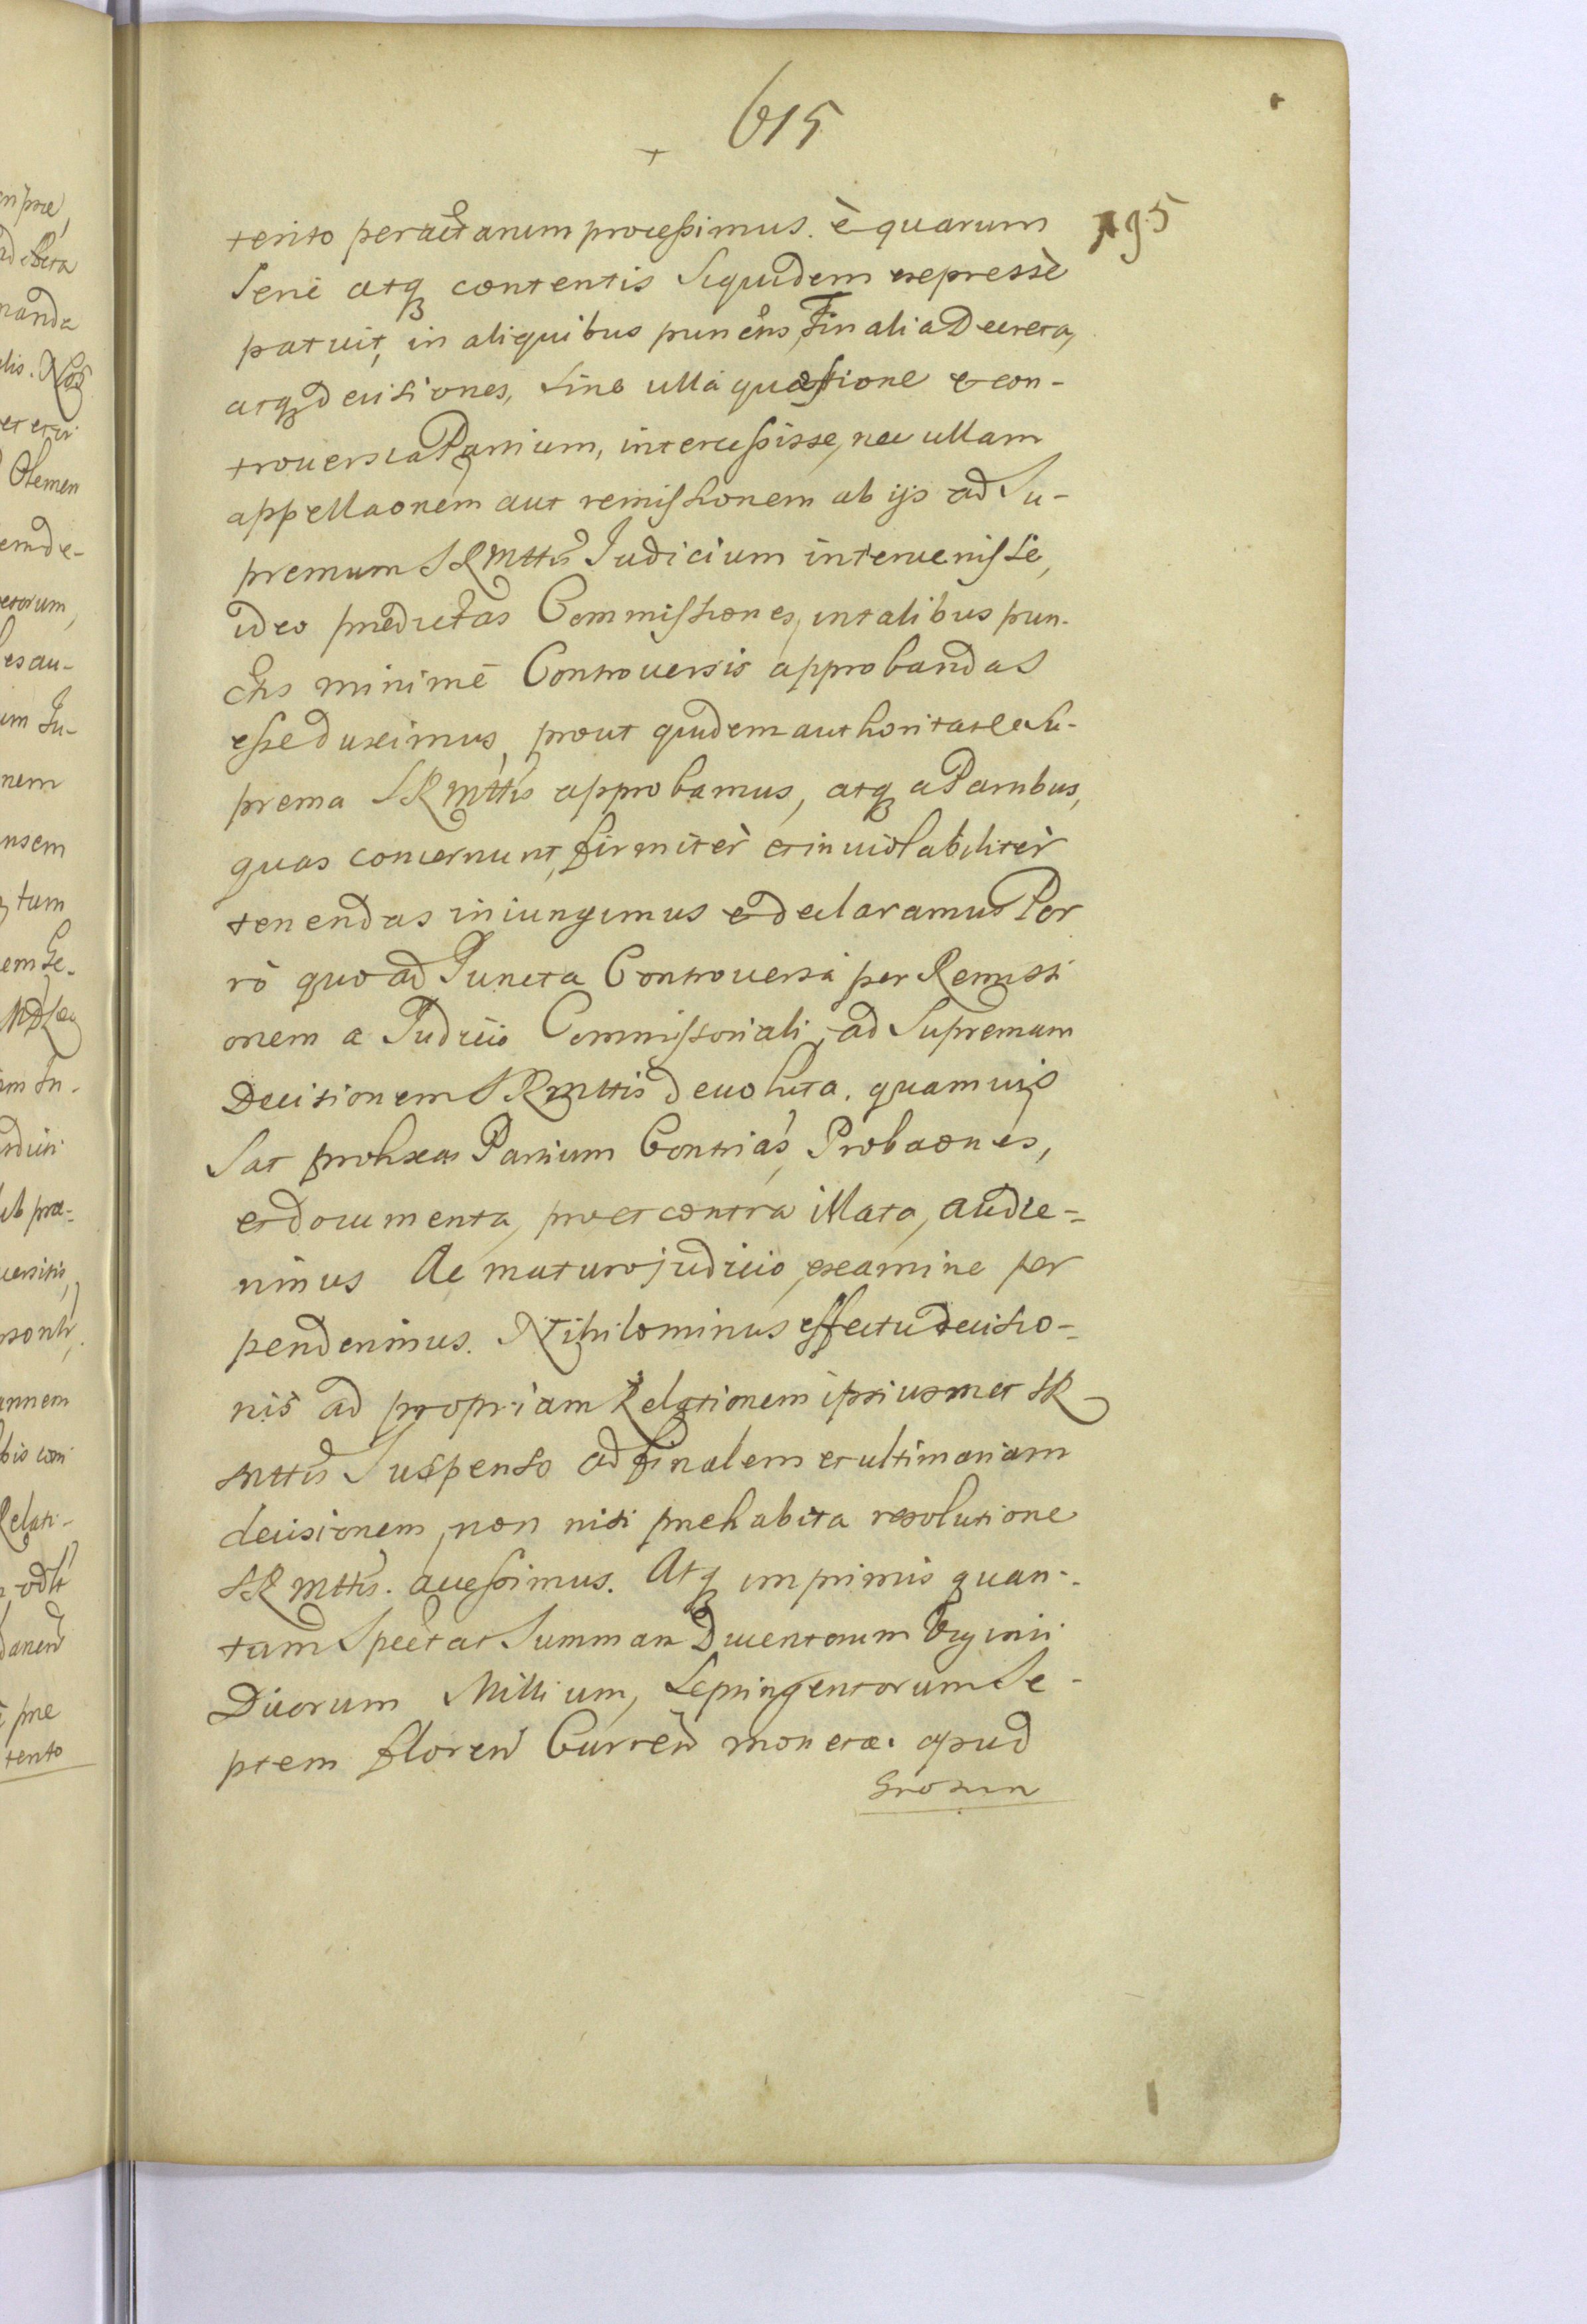 615
195
terito peractarum processimus. è quarum
Serie atq contentis Siquidem expressè
patuit, in aliquibus punctis, Finalia Decreta,
atq decisiones, sine ulla quæstione et con-
trouersia Partium, intercessisse, nec ullam
appellaonem aut remissionem ab ijs ad Su-
premum SRMttis Judicium interuenisse,
ideo prædictas Commissiones, in talibus pun-
ctis minimè Controuersis approbandas
esse duximus, prout quidem authoritate Su-
prema SRMttis approbamus, atq a Partibus,
quas concernunt, firmitèr et inuiolabilitèr
tenendas iniungimus et declaramus Por
rò quo ad Puncta Controuersa per Remissi
onem a Judicio Commissoriali, ad Supremam
Decisionem SRMttis deuoluta. quamuis
Sat prolixas Partium Contrias, Probaones,
et documenta, pro et contra illata, audie-
rimus Ac maturo judicio, examine per
penderimus. Nihilominus effectu decisio-
nis ad propriam Relationem ipsiusmet SR
Mttis Suspenso ad finalem et ultimariam
decisionem, non nisi præhabita resolutione
SRMttis. accessimus. Atq imprimis quan-
tum Spectat Summam Ducentorum Viginti
Duorum Millium, Septingentorum Se-
ptem floren Curren monetæ. apud